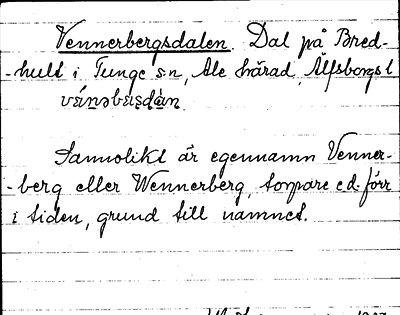 Vennerbergsdalen. Dal på Bred-
-hult i Tunge sn, Ale härad, Älfsborgs l
Sannolikt är egennamn Venner-
-berg eller Wennerberg, torpare e.d. förr
i tiden, grund till namnet.